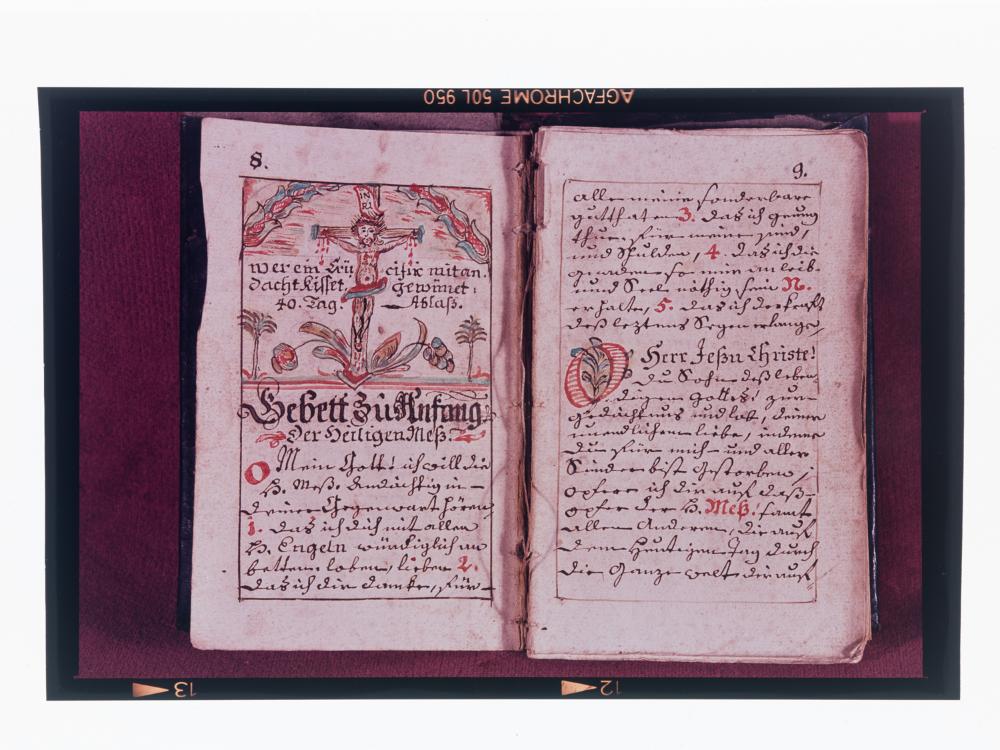 AGFACHROME 50L 950
8.
IN
RI
wer ein Crü cifix mit an.
dacht Kisset, gewinet:
40. Tag. Ablaß.
Gebett zu Anfang
Der Heiligen Meß.
O Mein Gott! ich will die
H. Meß. Andächtig in –
deiner Gegenwart hören
1. daß ich dich mit allen
H. Engeln würdiglich an
bettem loben, lieben 2.
daß ich dir danke, für –
9.
alle meine sonderbare
gutthaten 3. daß ich genug
thue, für meine sünd,
und schulden, 4. daß ich die
gnaden so mir an leib
und Seele nöthig sein N.
erhalte, 5. daß ich die kraft
deß leztens Segen erlange,
O Herr Jesu Christe!
du Sohn deß leben-
digen gottes! zur
gedächtnus und lob, deiner
unendlichen liebe, in deme
du für mich – und alle
Sünder bist gestorben,
opfere ich dir auf daß
opfer der H. Meß. samt
allen Anderen, die auf
dem heutigen Tag durch
die Ganze welt dir auf
13
12